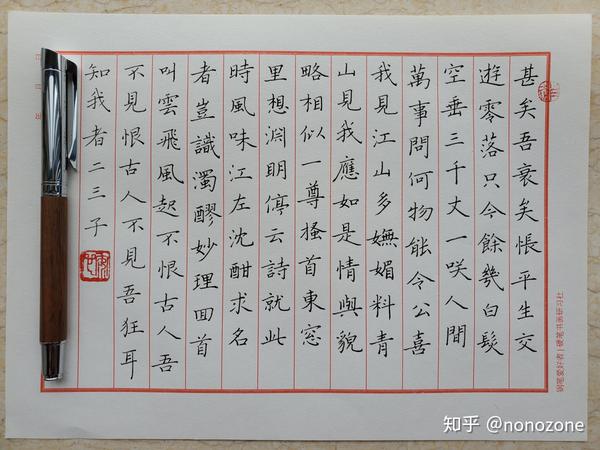 甚矣吾衰矣悵平生交
遊零落只今餘幾白髮
空垂三千丈一咲人間
萬事問何物能令公喜
我見江山多嫵媚料青
山見我應如是情與貌
略相似一尊搔首東窓
里想淵明停云詩就此
時風味江左沈酣求名
者豈識濁醪妙理回首
叫雲飛風起不恨古人吾
不見恨古人不見吾狂耳
知我者二三子
钢笔爱好者|硬笔书画研习社
知乎 @nonozone